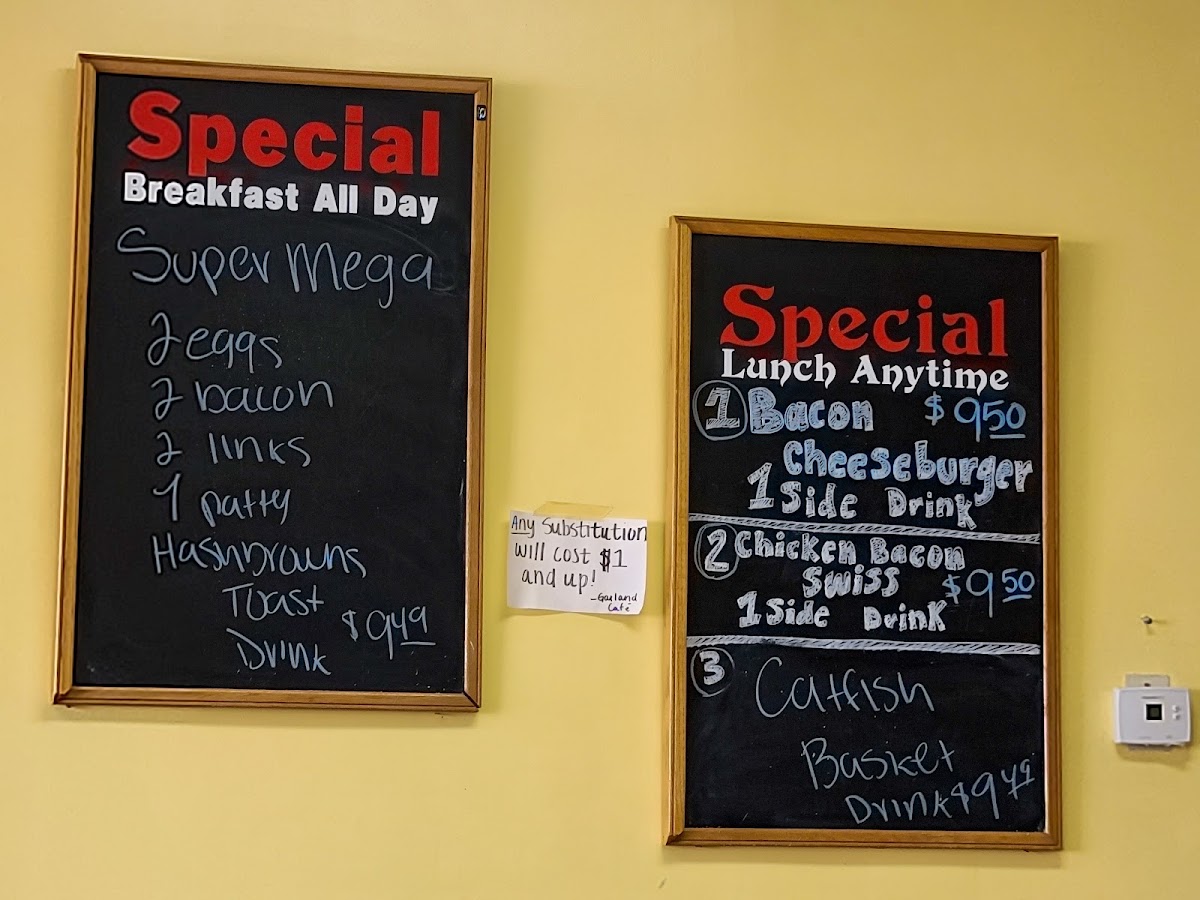 Special
Breakfast All Day
Super Mega
2 eggs
2 bacon
2 links
1 patty
Hashbrowns
Toast
Drink $9.49
Any Substitution
will cost $1
and up!
-Garland
Cafe
Special
Lunch Anytime
1 Bacon $9.50
Cheeseburger
1 Side Drink
2 Chicken Bacon
Swiss $9.50
1 Side Drink
3 Catfish
Basket
Drink $9.49